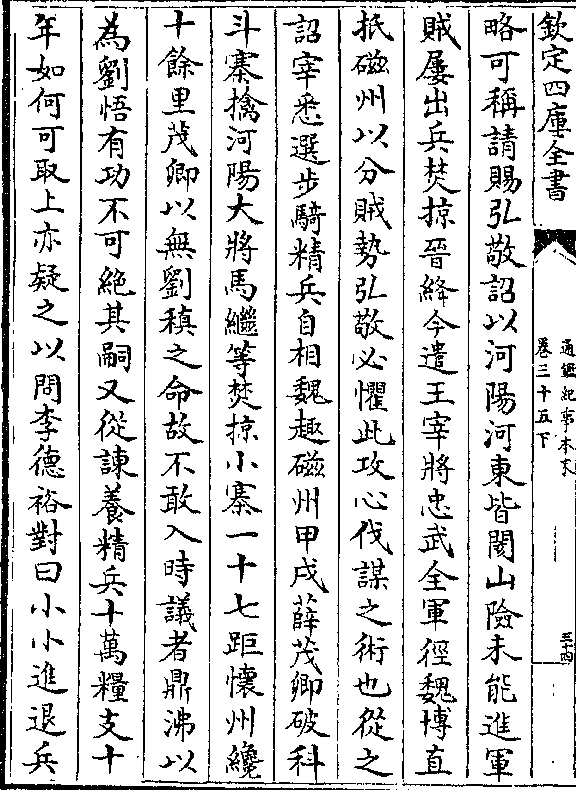 欽定四庫全書
通鑑紀事本末
卷三十五下
三十四
略可稱請賜弘敬詔以河陽河東皆閡山險未能進軍
賊屢出兵焚掠晉絳今遣王宰將忠武全軍徑魏博直
抵磁州以分賊勢弘敬必懼此攻心伐謀之術也從之
詔宰悉選步騎精兵自相魏趣磁州甲戌薛茂卿破科
斗寨擒河陽大將馬繼等焚掠小寨一十七距懷州纔
十餘里茂卿以無劉稹之命故不敢入時議者鼎沸以
為劉悟有功不可絶其嗣又從諫養精兵十萬糧支十
年如何可取上亦疑之以問李德裕對曰小小進退兵